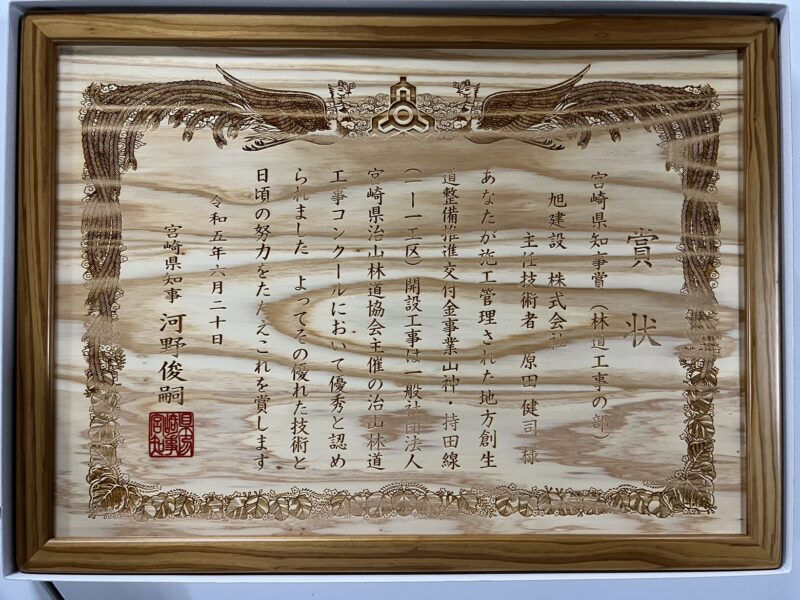 賞状
宮崎県知事賞（林道工事の部）
旭建設 株式会社
主任技術者 原田 健司 様
あなたが施工管理された地方創生
道整備推進交付金事業山神・持田線
（一－一工区）開設工事は一般社団法人
宮崎県治山林道協会主催の治山林道
工事コンクールにおいて優秀と認め
られました よってその優れた技術と
日頃の努力をたたえこれを賞します
令和五年六月二十日
宮崎県知事 河野俊嗣